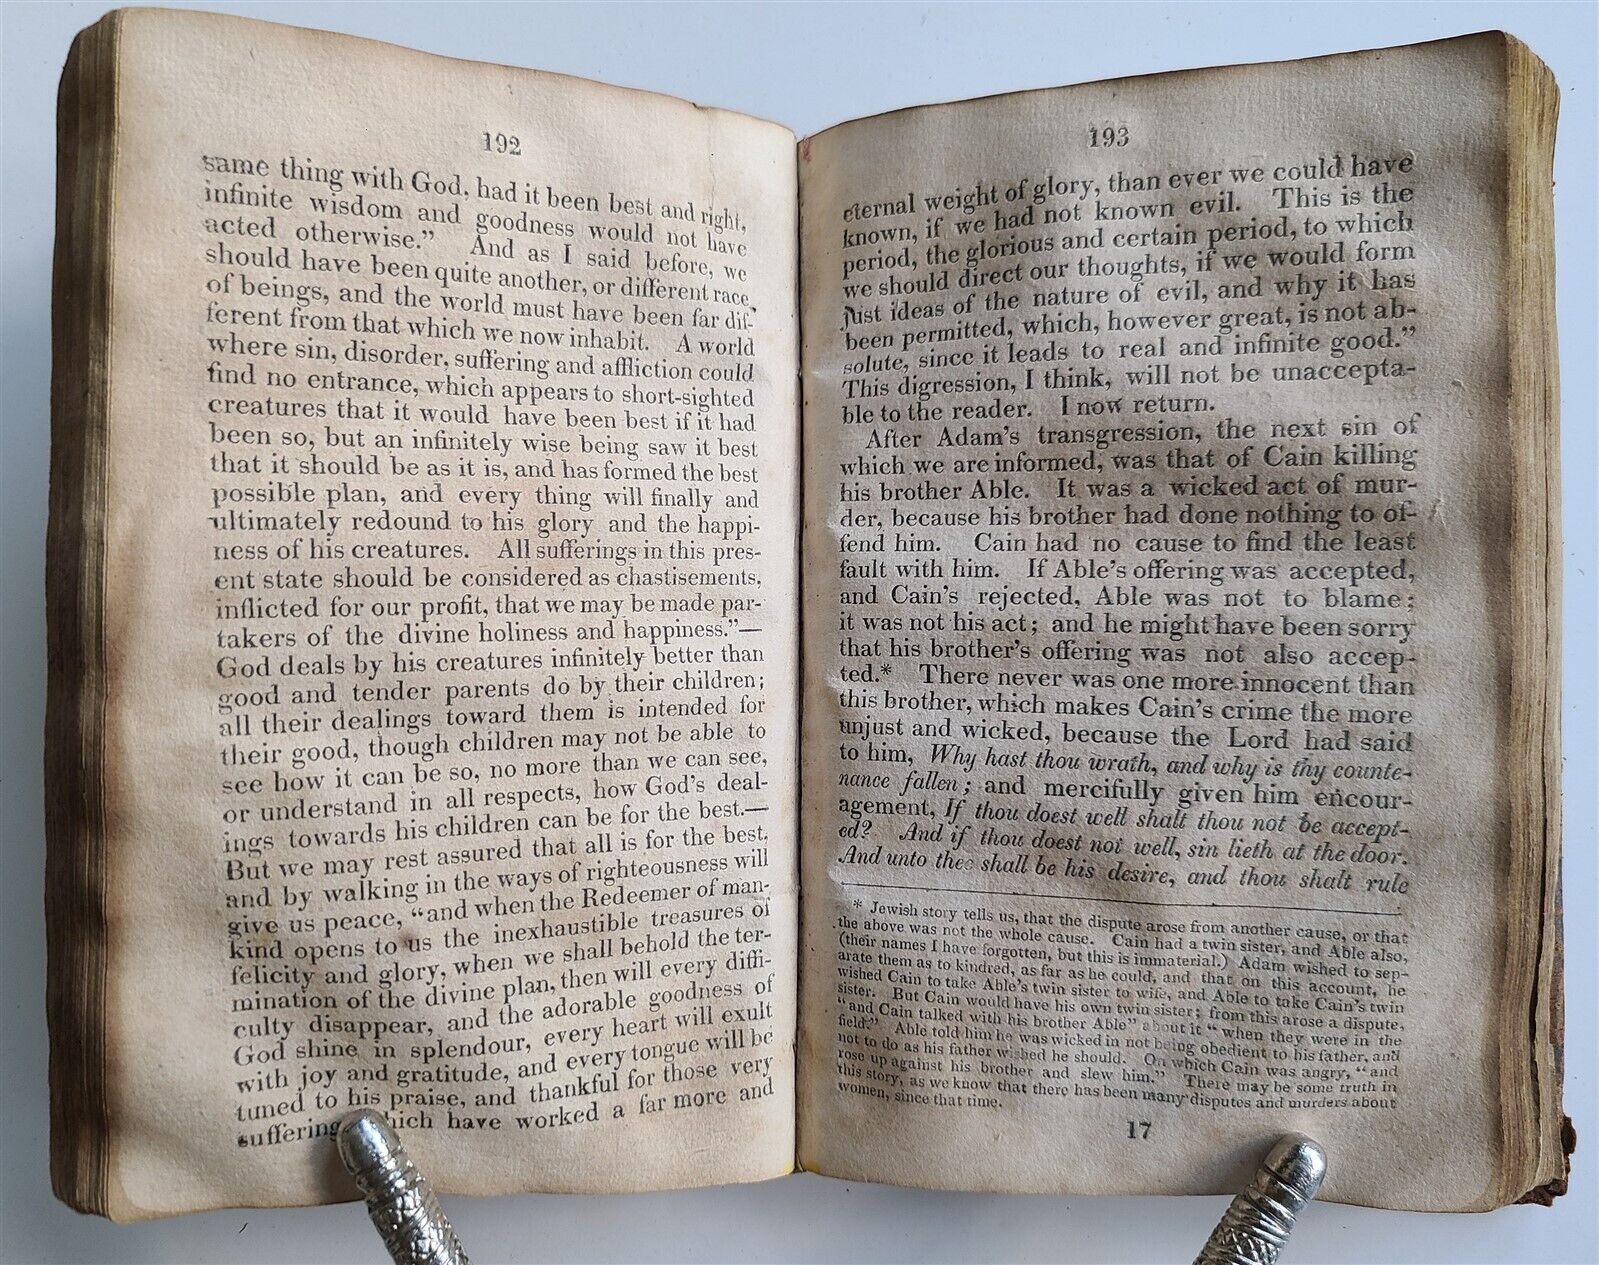 192
same thing with God, had it been best and right,
infinite wisdom and goodness would not have
acted otherwise.” And as I said before, we
should have been quite another, or different race
of beings, and the world must have been far dif-
ferent from that which we now inhabit. A world
where sin, disorder, suffering and affliction could
find no entrance, which appears to short-sighted
creatures that it would have been best if it had
been so, but an infinitely wise being saw it best
that it should be as it is, and has formed the best
possible plan, and every thing will finally and
ultimately redound to his glory and the happi-
ness of his creatures. All sufferings in this pres-
ent state should be considered as chastisements,
inflicted for our profit, that we may be made par-
takers of the divine holiness and happiness.”—
God deals by his creatures infinitely better than
good and tender parents do by their children;
all their dealings toward them is intended for
their good, though children may not be able to
see how it can be so, no more than we can see,
or understand in all respects, how God's deal-
ings towards his children can be for the best.—
But we may rest assured that all is for the best,
and by walking in the ways of righteousness will
give us peace, “and when the Redeemer of man-
kind opens to us the inexhaustible treasures of
felicity and glory, when we shall behold the ter-
mination of the divine plan, then will every diffi-
culty disappear, and the adorable goodness of
God shine in splendour, every heart will exult
with joy and gratitude, and every tongue will be
tuned to his praise, and thankful for those very
suffering which have worked a far more and
193
eternal weight of glory, than ever we could have
known, if we had not known evil. This is the
period, the glorious and certain period, to which
we should direct our thoughts, if we would form
just ideas of the nature of evil, and why it has
been permitted, which, however great, is not ab-
solute, since it leads to real and infinite good.”
This digression, I think, will not be unaccepta-
ble to the reader. I now return.
After Adam's transgression, the next sin of
which we are informed, was that of Cain killing
his brother Able. It was a wicked act of mur-
der, because his brother had done nothing to of-
fend him. Cain had no cause to find the least
fault with him. If Able's offering was accepted,
and Cain's rejected, Able was not to blame;
it was not his act; and he might have been sorry
that his brother's offering was not also accep-
ted.* There never was one more innocent than
this brother, which makes Cain's crime the more
unjust and wicked, because the Lord had said
to him, Why hast thou wrath, and why is thy counte-
nance fallen; and mercifully given him encour-
agement, If thou doest well shalt thou not be accept-
ed? And if thou doest not well, sin lieth at the door.
And unto thee shall be his desire, and thou shalt rule
* Jewish story tells us, that the dispute arose from another cause, or that
the above was not the whole cause. Cain had a twin sister, and Able also,
(their names I have forgotten, but this is immaterial.) Adam wished to sep-
arate them as to kindred, as far as he could, and that on this account, he
wished Cain to take Able's twin sister to wife, and Able to take Cain's twin
sister. But Cain would have his own twin sister; from this arose a dispute,
“and Cain talked with his brother Able” about it “when they were in the
field.” Able told him he was wicked in not being obedient to his father, and
not to do as his father wished he should. On which Cain was angry, “and
rose up against his brother and slew him.” There may be some truth in
this story, as we know that there has been many disputes and murders about
women, since that time.
17